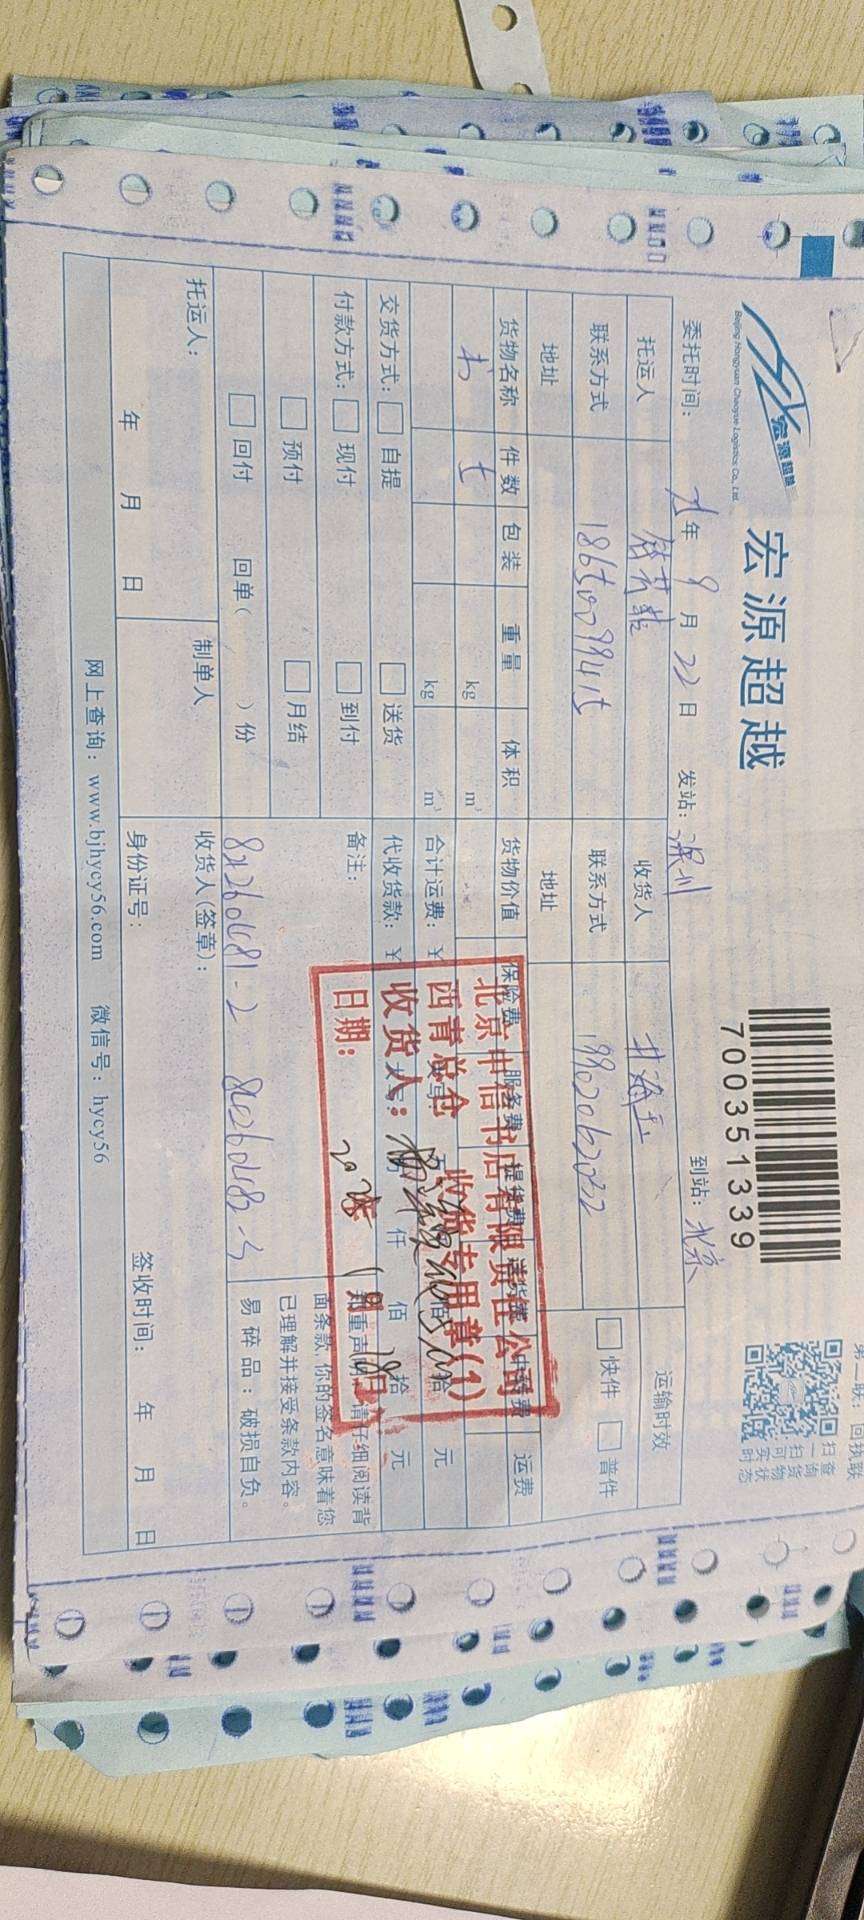 宏源超越
Beijing Hongyuan Chaoyue Logistics Co., Ltd.
宏源超越
700351339
第二联：回执联
扫一扫可实时
查询货物状态
委托时间： 年 9 月 22 日 发站：深圳 到站：北京
托运人 收货人 运输时效
联系方式 联系方式 1992062032 快件 普件
地址 地址
货物名称 件数 包装 重量 体积 货物价值 保险费 服务费 提货费 送货费 中转费 运费
书 七 kg m³
kg m³ 合计运费：¥ 佰 拾 元
交货方式： 自提 送货 代收货款：¥ 仟 佰 拾 元
付款方式： 现付 到付 备注：
预付 月结
回付 回单（ ）份
郑重声明：请仔细阅读背
面条款，你的签名意味着您
已理解并接受条款内容。
易碎品：破损自负。
托运人： 制单人 收货人(签章)：
年 月 日 身份证号： 签收时间： 年 月 日
网上查询：www.bjhycy56.com 微信号：hycy56
北京中信书店有限责任公司
西青总仓 收货专用章(1)
收货人：
日期：